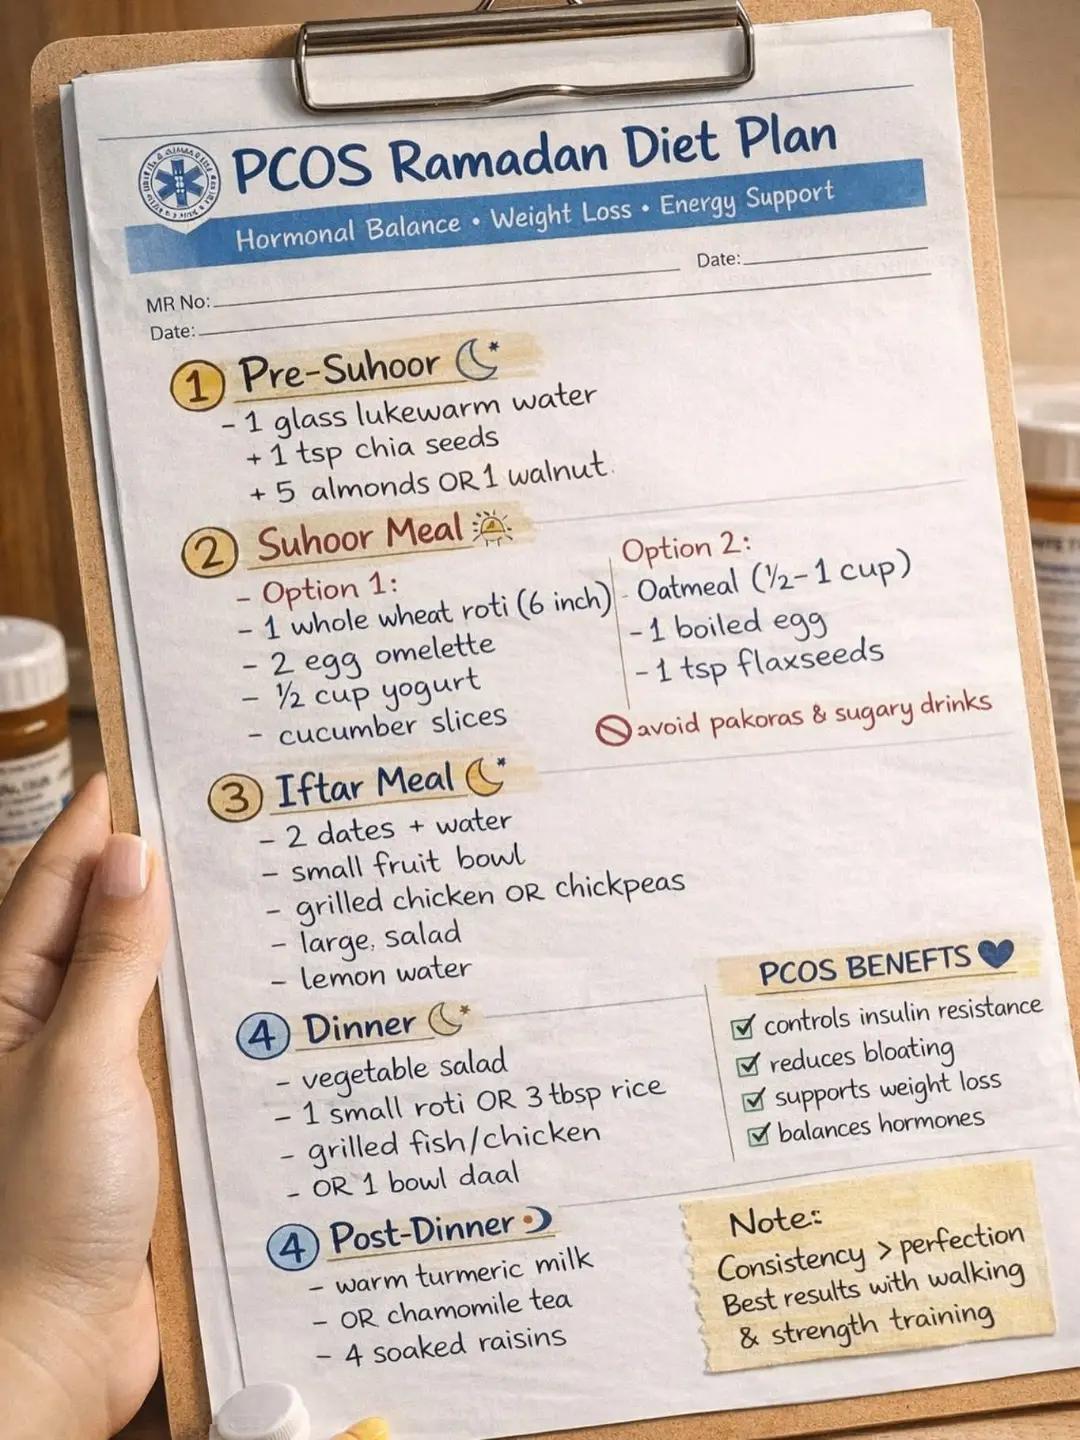 PCOS Ramadan Diet Plan
Hormonal Balance • Weight Loss • Energy Support
MR No:
Date:
Date:
1 Pre-Suhoor
- 1 glass lukewarm water
+ 1 tsp chia seeds
+ 5 almonds OR 1 walnut.
2 Suhoor Meal
- Option 1:
- 1 whole wheat roti (6 inch)
- 2 egg omelette
- ½ cup yogurt
- cucumber slices
Option 2:
- Oatmeal (½-1 cup)
- 1 boiled egg
- 1 tsp flaxseeds
avoid pakoras & sugary drinks
3 Iftar Meal
- 2 dates + water
- small fruit bowl
- grilled chicken OR chickpeas
- large, salad
- lemon water
4 Dinner
- vegetable salad
- 1 small roti OR 3 tbsp rice
- grilled fish/chicken
- OR 1 bowl daal
PCOS BENEFTS
controls insulin resistance
reduces bloating
supports weight loss
balances hormones
4 Post-Dinner
- warm turmeric milk
- OR chamomile tea
- 4 soaked raisins
Note::
Consistency > perfection
Best results with walking
& strength training